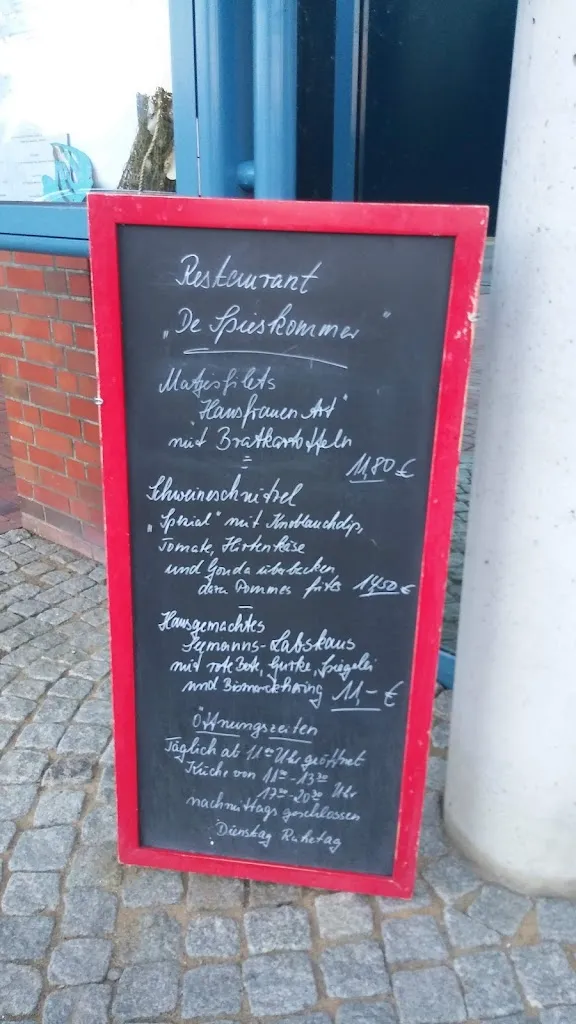 Restaurant
„De Spieskommer"
Matjesfilets
"Hausfrauen Art"
mit Bratkartoffeln
11,80 €
Schweineschnitzel
„Spezial" mit Knoblauchdip,
Tomate, Hirtenkäse
und Gouda überbacken
dazu Pommes frites 14,50 €
Hausgemachtes
Seemanns-Labskaus
mit rote Bete, Gurke, Spiegelei
und Bismarckhering 11,- €
Öffnungszeiten
Täglich ab 11 00 Uhr geöffnet
Küche von 11 30 - 13 30
17 30 - 20 30 Uhr
nachmittags geschlossen
Dienstag Ruhetag